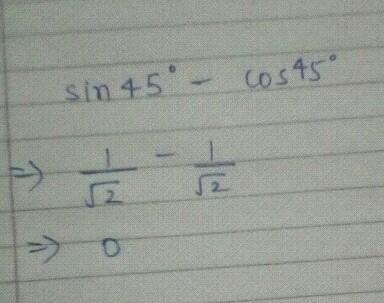 sin 45° - cos 45°
⇒ 1/√2 - 1/√2
⇒ 0